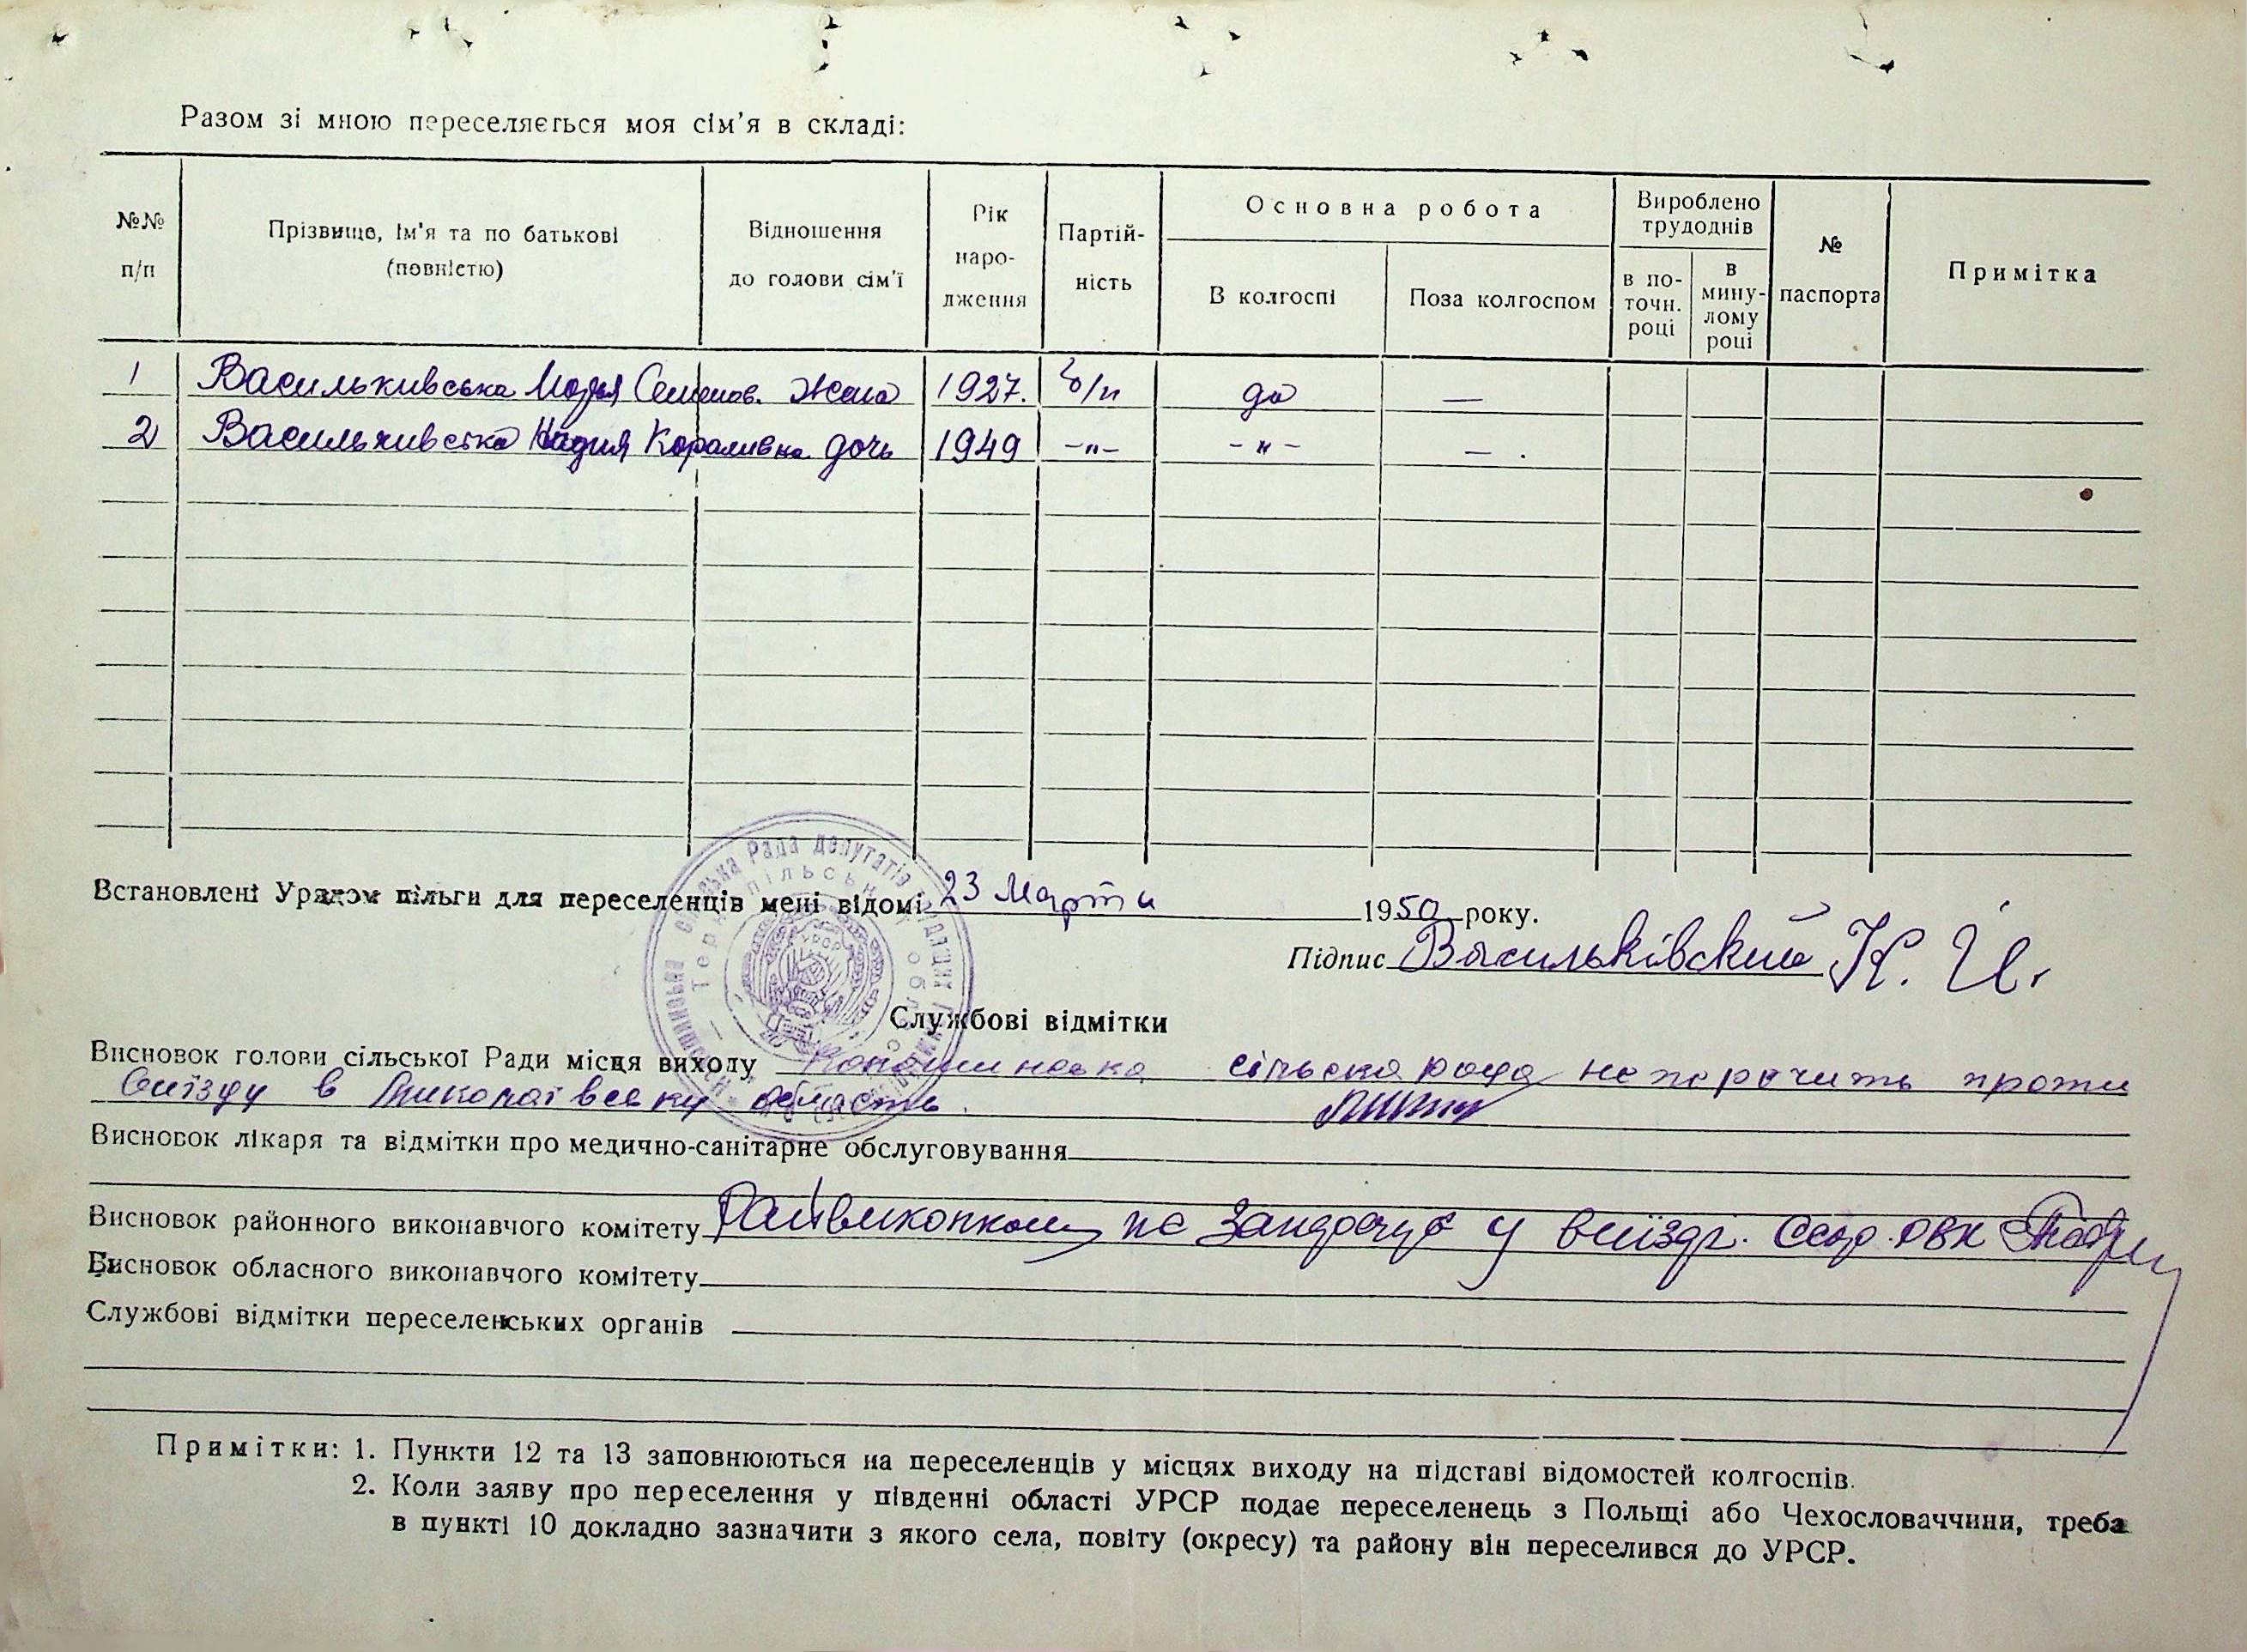 Разом зі мною переселяється моя сім'я в складі:
№№ п/п
Прізвище, ім'я та по батькові (повністю)
Відношення до голови сім'ї
Рік народження
Партійність
Основна робота
В колгоспі
Поза колгоспом
Вироблено трудоднів
в поточн. році
в минулому році
№ паспорта
Примітка
1 Васильківська Марія Семенов. Жена 1927. б/п да —
2 Васильківська Надия дочь 1949 -"- -"- — .
Встановлені Урядом пільги для переселенців мені відомі 23 Марта 1950 року.
Підпис Васильківский К. И.
Службові відмітки
Висновок голови сільської Ради місця виходу сільска рада не
виїзду в Миколаївську область.
Висновок лікаря та відмітки про медично-санітарне обслуговування
Висновок районного виконавчого комітету Райвиконком не заперечує у виїзді. Секр. РВК
Висновок обласного виконавчого комітету
Службові відмітки переселенських органів
Примітки: 1. Пункти 12 та 13 заповнюються на переселенців у місцях виходу на підставі відомостей колгоспів.
2. Коли заяву про переселення у південні області УРСР подає переселенець з Польщі або Чехословаччини, треба
в пункті 10 докладно зазначити з якого села, повіту (окресу) та району він переселився до УРСР.